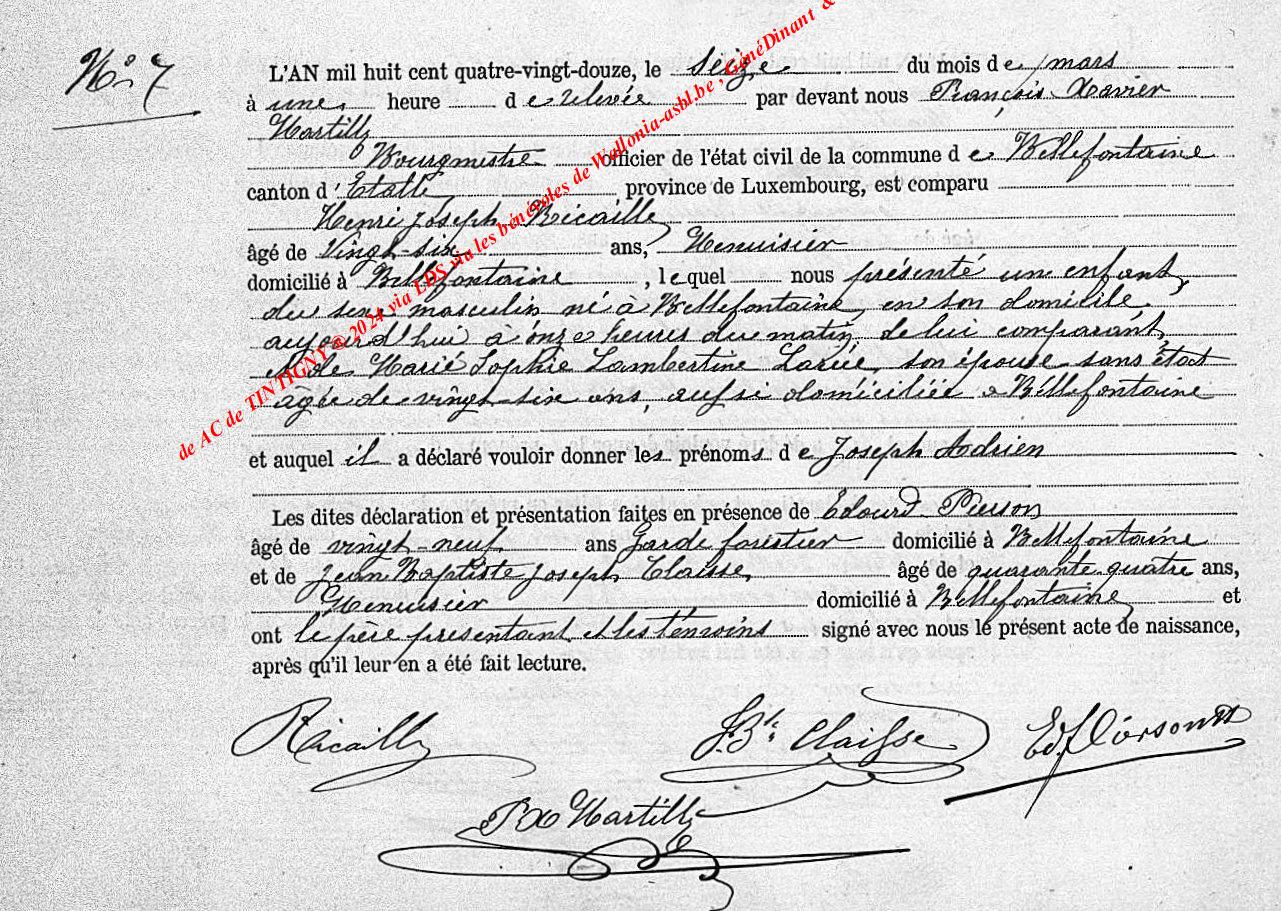 N° 7
L'AN mil huit cent quatre-vingt-douze, le seize du mois de mars
à une heure de relevée par devant nous François Xavier
Martilly
Bourgmestre officier de l'état civil de la commune de Bellefontaine
canton d'Etalle province de Luxembourg, est comparu
Henri Joseph Ricailly
âgé de vingt-six ans, Menuisier
domicilié à Bellefontaine, lequel nous présenté un enfant
du sexe masculin né à Bellefontaine, en son domicile,
aujourd'hui à onze heures du matin, de lui comparant,
et de Marie Sophie Lambertine son épouse sans état
âgée de vingt-six ans, aussi domiciliée à Bellefontaine
et auquel il a déclaré vouloir donner les prénoms de Joseph Adrien
Les dites déclaration et présentation faites en présence de Edourd Pierson
âgé de vingt-neuf ans Garde forestier domicilié à Bellefontaine
et de Jean Baptiste Joseph Claisse, âgé de quarante-quatre ans,
Menuisier domicilié à Bellefontaine et
ont le père présentant et les témoins signé avec nous le présent acte de naissance,
après qu'il leur en a été fait lecture.
Ricailly
J. Bte Claisse
Ed. Pierson
F X Martilly
de AC de TINTIGNY @ 2024 via LDS via les bénévoles de Wallonia-asbl.be, GénéDinant &